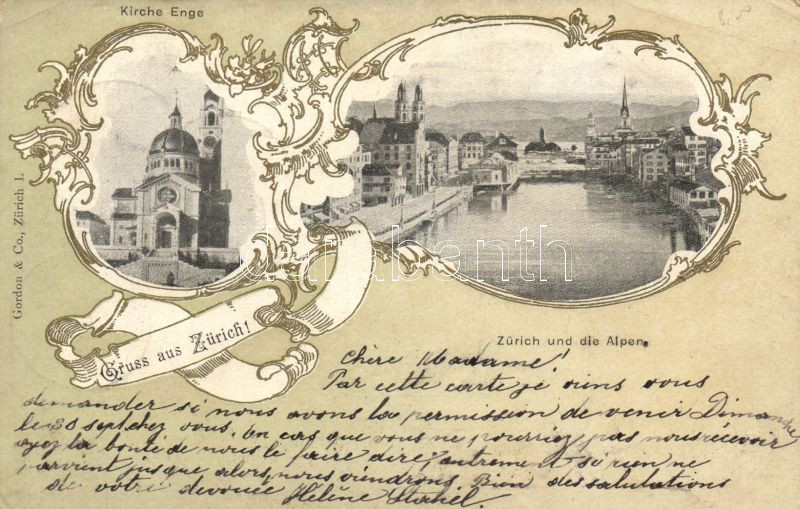 Kirche Enge
Gordon & Co., Zürich 1.
Zürich und die Alpen.
Gruss aus Zürich!
Darabanth
chère Madame!
Par cette carte je viens vous
demander si nous avons la permission de venir Dimanche
le 30 sept. chez vous. En cas que vous ne pourriez pas nous recevoir
ayez la bonté de nous le faire dire, autrement si rien ne
parvient jusque alors, nous viendrons. Bien des salutations
de votre devouée Hélène Stahel.